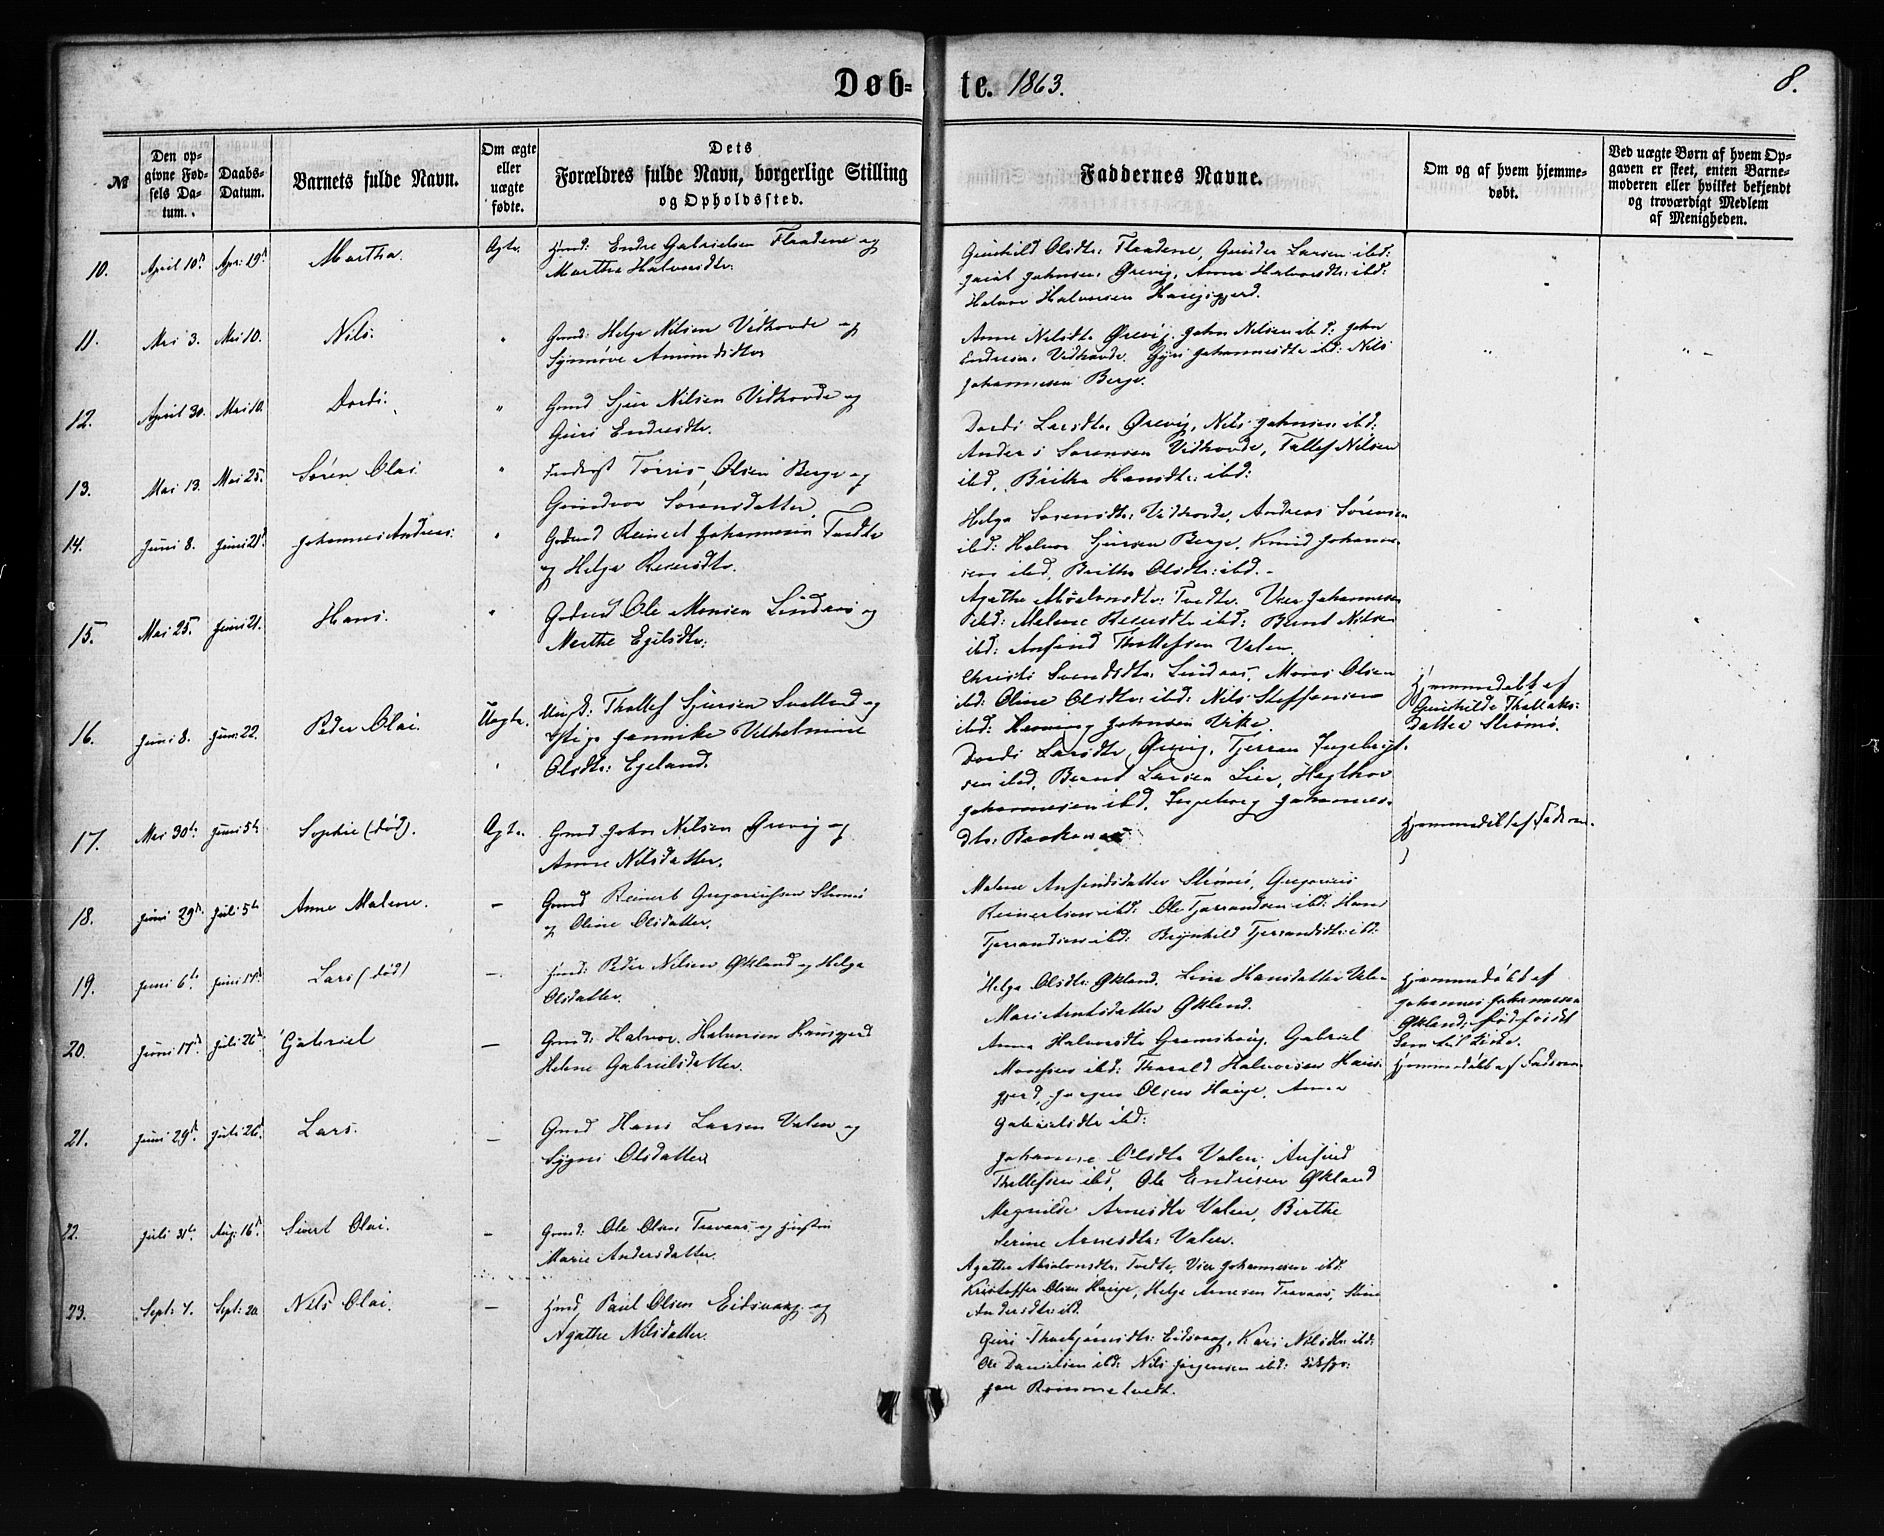 Døb- te. 1863. 8.
№
Den opgivne Fødsels Datum.
Daabs-Datum.
Barnets fulde Navn.
Om ægte eller uægte fødte.
Dets Forældres fulde Navn, borgerlige Stilling og Opholdssted.
Faddernes Navne.
Om og af hvem hjemmedøbt.
Ved uægte Børn af hvem Opgaven er skeet, enten Barnemoderen eller hvilket bekjendt og troværdigt Medlem af Menigheden.
10. April 10de Apr: 19de Martha. Ægte. Endre Gabrielsen Fladene og
Martha Halvorsdtr:
Gunhild Olsdtr: Fladene, Gunder Larsen ibd:
Jacob Johnsen Ørevig, Anna Halvorsdtr: ibd:
Halvor Halvorsen
11. Mai 3. Mai 10. Nils. " Gmd: Helge Nilsen Vidhovde og
Synnøve Amundsdtr
Anne Nilsdtr Ørevig. John Nilsen ibd: John
Endresen Vidhovde. Guri Johannesdtr ibd: Nils
Johannesen Berge.
12. April 30. Mai 10. Dordi. " Gmd Sjur Nilsen Vidhovde og
Guri Endresdtr.
Dordi Larsdtr Ørevig, Nils Johnsen ibd:
Anders Sorensen Vidhovde, Tallef Nilsen
ibd, Britha Hansdtr: ibd:
13. Mai 13. Mai 25. Søren Olai. " Torris Olsen Berge og
Sørensdatter.
Helga Sørensdtr: Vidhovde, Andreas Sørensen
ibd: Halvor Sjursen Berge, Knud Johanne-
sen ibd, Britha Olsdtr: ibd.-
14. Juni 8. Juni 21. Johannes Andreas. " Reinert Johannesen Tvedte
og Helga Reiersdtr.
Agathe Tvedte. Vier Johannesen
ibd: Malene ibd: Bernt Nilsen
ibd: Anfind Thollefsen Valen.
15. Mai 25. Juni 21. Hans. " Ole Monsen Lindaas og
Marthe Egilsdtr:
Christi Svendsdtr Lindaas, Mons Olsen
ibd: Oline Olsdtr: ibd: Nils Steffensen
ibd: Henning Johnsen Vike.
16. Juni 8. Juni 22. Peder Olai. Uægte. Ungk: Thollef Sjursen Svalland og
Pige Jannike Vilhelmine
Olsdtr: Egeland.
Dordi Larsdtr Ørevig, Tjerran Ingebrigt-
sen ibd, Bernt Larsen Lier,
Johannesen ibd, Ingeborg Johannes-
dtr:
Hjemmedøbt af
Gunhilde Thollaks-
datter Strømø.
17. Mai 30te Juni 5te Sophie (død). Ægte. Gmd John Nilsen Ørevig og
Anne Nilsdatter.
Hjemmedøbt af Faderen.
18. Juni 29de Juli 5te Anne Malene. — Gmd Reinert Gregoriussen Strømø
og Oline Olsdatter.
Malene Anfindsdatter Strømø, Gregorius
Reinertsen ibd: Ole Tjerrandsen ibd: Hans
Tjerrandsen ibd: Brynhild Tjerrandsdtr: ibd:
19. Juni 6te Juni 17de Lars (død) — Peder Nilsen Økland og Helga
Olsdatter.
Helga Olsdtr: Økland. Lina Hansdatter Valen
Mari Arntsdatter Økland.
Hjemmedøbt af
Johannes Johannesen
Økland;
20. Juni 17de Juli 26de Gabriel — Gmd: Halvor Halvorsen
Helene Gabrielsdatter.
Anna Halvorsdtr Gabriel
Monsen ibd: Tharald Halvorsen
Olsen Hauge, Anna
Gabrielsdtr ibd:
Hjemmedøbt af Faderen
21. Juni 29de Juli 26de Lars. — Gmd Hans Larsen Valen og
Sygni Olsdatter
Johanne Olsdtr Valen, Anfind
Thollefsen ibd, Ole Endresen Økland
Magnilde Arnesdtr Valen, Birthe
Serine Arnesdtr: Valen.
22. Juli 31te Aug: 16de Sivert Olai. — Gmd: Ole Olsen Travaas og
Marie Andersdatter.
Agathe Absalonsdtr: Tvedte, Vier Johannesen ibd.
Kristoffer Olsen Hauge, Helge Arnesen Travaas, Stine
Andersdtr ibd.
23. Sept: 4. Sept: 20. Nils Olai. — Paul Olsen Eidsvaag og
Agathe Nilsdatter.
Guri Thorbjørnsdtr: Eidsvaag, Kari Nilsdtr: ibd:
Ole Danielsen ibd: Nils Jørgensen ibd:
Rommetvedt.